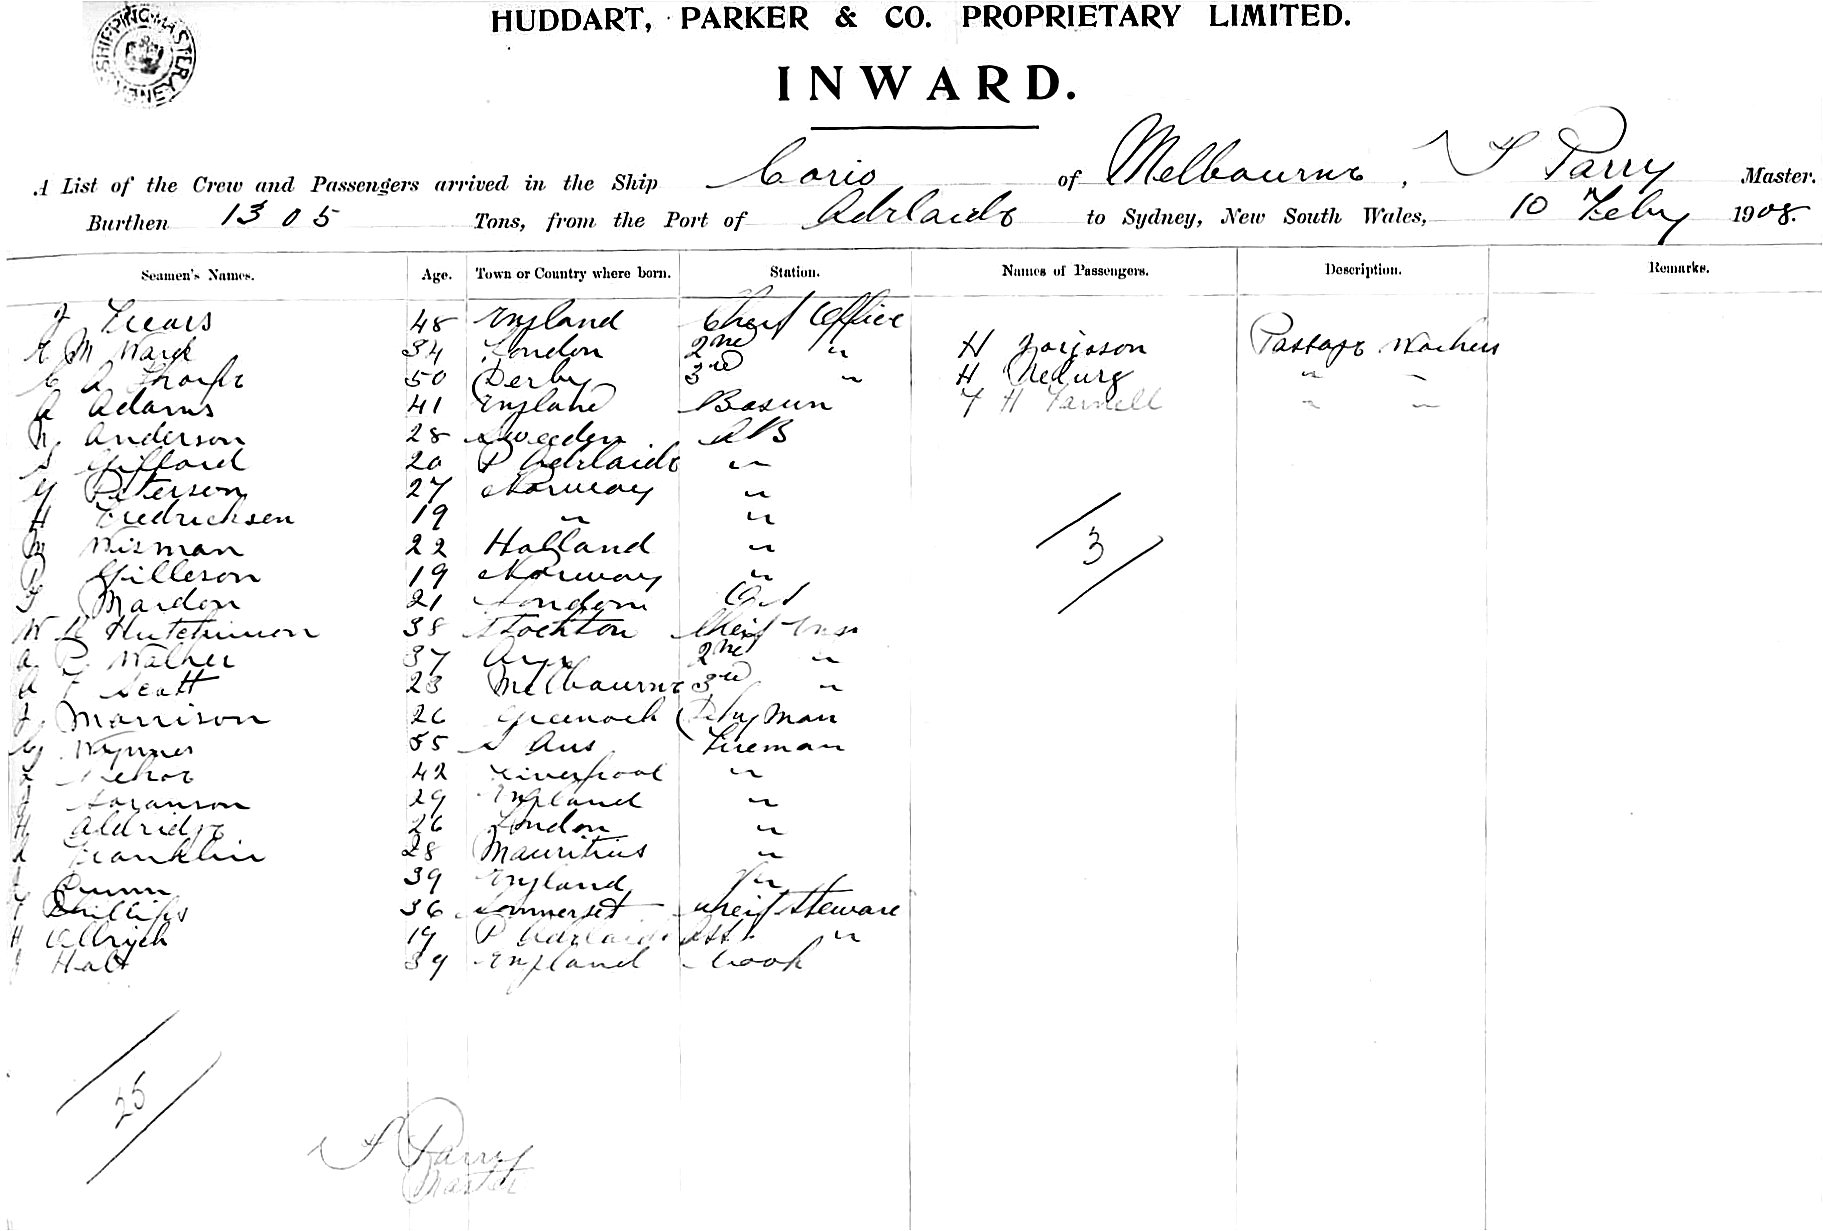 SHIPPING MASTER SYDNEY
HUDDART, PARKER & CO. PROPRIETARY LIMITED.
INWARD.
A List of the Crew and Passengers arrived in the Ship Corio of Melbourne, F Parry Master.
Burthen 1305 Tons, from the Port of Adelaide to Sydney, New South Wales, 10 Feby 1908.
Seamen's Names. Age. Town or Country where born. Station. Names of Passengers. Description. Remarks.
J 48 England Cheif Office
M Ward 34 London 2nd " H Passage Workers
C A Tharpe 50 Derby 3rd " H " "
A Adams 41 England Bosun F H Farnell " "
Anderson 28 Sweeden AB
Gifford 20 P Adelaide "
Peterson 27 Norway "
H Fredricksen 19 " "
Wisman 22 Holland "
Gilleson 19 Norway "
Mardon 21 London
3
W Hutchinson 38 Stockton Cheif
A Walker 37 Ayr 2nd "
A Scott 23 Melbourne 3rd "
J Morrison 26 Greenock Dky Man
Wynnes 55 S Aus Fireman
42 Liverpool "
Soranson 29 England "
H Aldridge 26 London "
Franklin 28 Mauritius "
Quinn 39 England "
F Phillips 36 Sommerset Cheif Steward
H Albrych 19 P Adelaide Asst "
Halt 39 England Cook
25
F Parry
Master